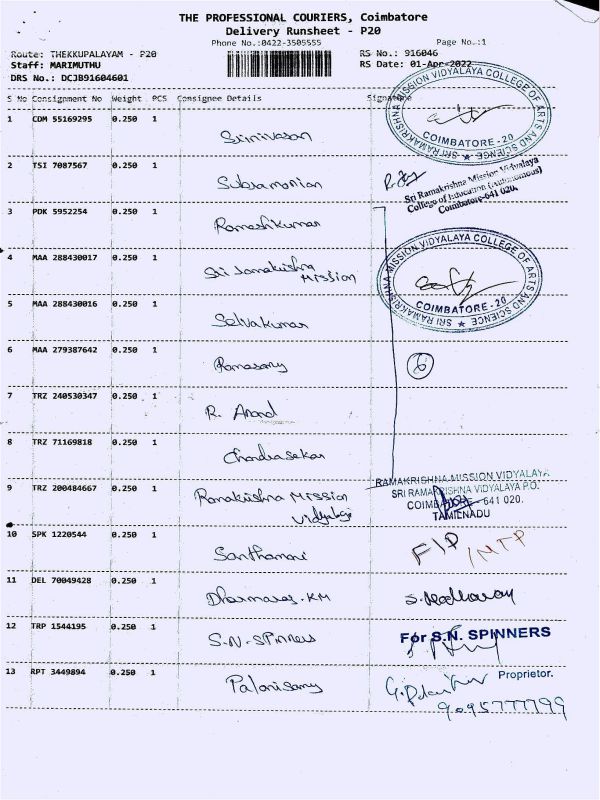 THE PROFESSIONAL COURIERS, Coimbatore
Delivery Runsheet - P20
Phone No.:0422-3505555
Page No.:1
Route: THEKKUPALAYAM - P20
RS No.: 916046
Staff: MARIMUTHU
RS Date: 01-Apr-2022
DRS No.: DCJB91604601
S No Consignment No Weight PCS Consignee Details Signature
1 CDM 55169295 0.250 1 Srinivasan
SRI RAMAKRISHNA MISSION VIDYALAYA COLLEGE OF ARTS AND SCIENCE
COIMBATORE - 20
2 TSI 7087567 0.250 1 Subramanian
Sri Ramakrishna Mission Vidyalaya
College of Education (Autonomous)
Coimbatore-641 020.
3 PDK 5952254 0.250 1 Ramesh Kumar
4 MAA 288430017 0.250 1 Sri Mission
SRI RAMAKRISHNA MISSION VIDYALAYA COLLEGE OF ARTS AND SCIENCE
COIMBATORE - 20
5 MAA 288430016 0.250 1 Selvakumar
6 MAA 279387642 0.250 1 Ramasamy
6
7 TRZ 240530347 0.250 1 R. Anand
8 TRZ 71169818 0.250 1 Chandrasekar
9 TRZ 200484667 0.250 1 Ramakrishna Mission
RAMAKRISHNA MISSION VIDYALAYA
SRI RAMAKRISHNA VIDYALAYA P.O.
COIMBATORE - 641 020.
TAMILNADU
10 SPK 1220544 0.250 1 Santhamani
11 DEL 70049428 0.250 1 Dharmaraj. KM
12 TRP 1544195 0.250 1 S.N. Spinners
For S.N. SPINNERS
Proprietor.
13 RPT 3449894 0.250 1 Palanisamy
9095777799